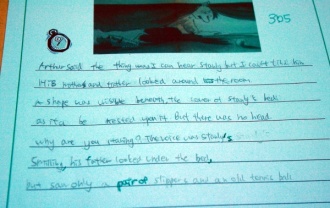 365
Arthur said the thing was I can hear study but I can't
his mother and father looked around the room
A shape was visible beneath the cover of study's bed
as if a be rested upon it but there was no head.
why are you staring? The voice was study's
his father looked under the bed,
But saw only a pair of slippers and an old tennis ball.